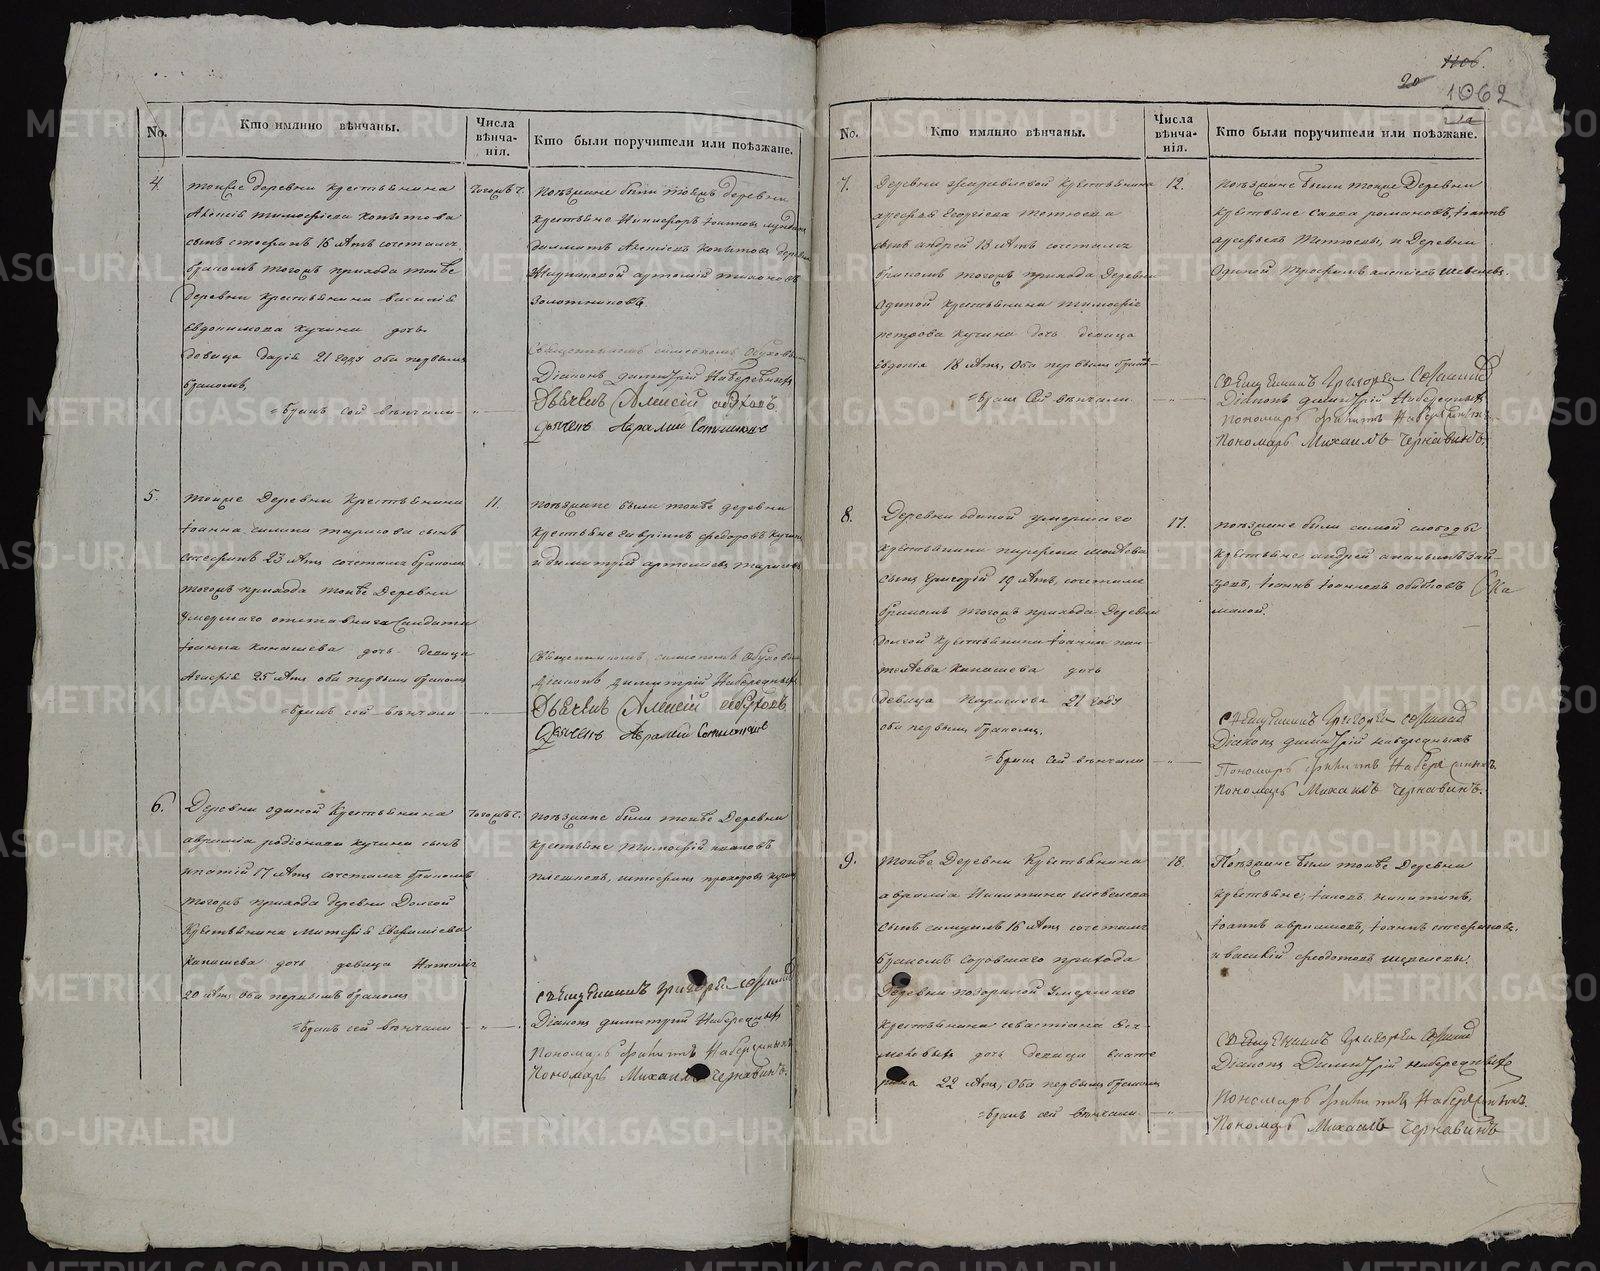 1106.
20
1062
No.
Кто имянно вѣнчаны.
Числа вѣнча-
нія.
Кто были поручители или поѣзжане.
4.
тоиже деревни крестьянина
Алексія тимофѣева копытова
сынъ стефанъ 16 лѣтъ сочетался
бракомъ тогожъ прихода тоиже
деревни крестьянина василія
Евдокимова Кучина дочь
девица дарія 21 году оба первымъ
бракомъ,
=бракъ сей вѣнчали
тогожъ ч.
поѣзжане были тоежъ деревни
крестьяне Никифоръ Іоанновъ
Алексіевъ Копытовъ
артемій тихоновъ
Золотниковъ.
Священникъ симеонъ обуховъ
Діаконъ димитрій Набережныхъ
Дьячекъ Алексій обуховъ
дьячекъ Авраамъ
5.
тоиже Деревни Крестьянина
Іоанна силина тарасова сынъ
стефанъ 23 лѣтъ сочетался бракомъ
тогожъ прихода тоиже Деревни
умершаго отставнаго Салдата
Іоанна Канашева дочь девица
25 лѣтъ оба первымъ бракомъ
=бракъ сей вѣнчали
11.
поѣзжане были тоиже деревни
крестьяне гавріилъ федоровъ Кучинъ
и димитрій артемьевъ тарасовъ
Священникъ симеонъ обуховъ
діаконъ димитрій Набережныхъ
Дьячекъ Алексій обуховъ
Дьячекъ Авраамъ
6.
Деревни одиной Крестьянина
авраамія родіонова кучина сынъ
ипатій 17 лѣтъ сочетался бракомъ
тогожъ прихода деревни Долгой
Крестьянина
канашева дочь девица Наталія
20 лѣтъ Оба первымъ бракомъ
=бракъ сей вѣнчали
тогожъ ч.
поѣзжане были тоиже Деревни
крестьяне Тимофѣй
плешковъ, стефанъ прохоровъ кучинъ
священникъ Григорій
Діаконъ димитрій Набережныхъ
Пономарь Набережныхъ
Пономарь Михаилъ Чернавинъ.
No.
Кто имянно вѣнчаны.
Числа вѣнча-
нія.
Кто были поручители или поѣзжане.
7.
Деревни журавлевой Крестьянина
арефья Георгіева тетюева
сынъ андрей 18 лѣтъ сочетался
бракомъ тогожъ прихода Деревни
Одиной Крестьянина тимофѣя
петрова кучина дочь девица
Евдокія 18 лѣтъ, Оба первымъ бракомъ
=бракъ Сей вѣнчали
12.
поѣзжане Были тоиже Деревни
Крестьяне Савва романовъ, Іоаннъ
арефьевъ Тетюевы, и Деревни
Одиной трофимъ алексіевъ шевелевъ.
Священникъ Григорій
Діаконъ димитрій Набережныхъ
Пономарь Набережныхъ
Пономарь Михаилъ Чернавинъ.
8.
Деревни одиной умершаго
крестьянина
сынъ Григорій 19 лѣтъ, сочетался
бракомъ тогожъ прихода Деревни
долгой Крестьянина Іоанна пан-
телѣева канашева дочь
девица Парасковья 21 году
оба первымъ бракомъ.
=бракъ сей вѣнчали
17.
поѣзжане были самой слободы
крестьяне андрей ананьинъ зай-
цевъ, Іоаннъ Іоанновъ
Священникъ Григорій
Діаконъ димитрій набережныхъ
Пономарь Набережныхъ
Пономарь Михаилъ Чернавинъ.
9.
тоиже Деревни Крестьянина
авраамія Никитина шевелева
сынъ самуилъ 16 лѣтъ сочетался
бракомъ прихода
Деревни позариной умершаго
крестьянина севастіана
дочь девица екате-
рина 22 лѣтъ, Оба первымъ бракомъ
=бракъ сей вѣнчали
18.
Поѣзжане Были тоиже Деревни
крестьяне, Іаковъ никитинъ,
Іоаннъ авраамовъ, Іоаннъ стефановъ,
и василій федотовъ шевелевы.
Священникъ Григорій
Діаконъ Димитрій набережныхъ
Пономарь Набережныхъ.
Пономарь Михаилъ Чернавинъ
METRIKI.GASO-URAL.RU